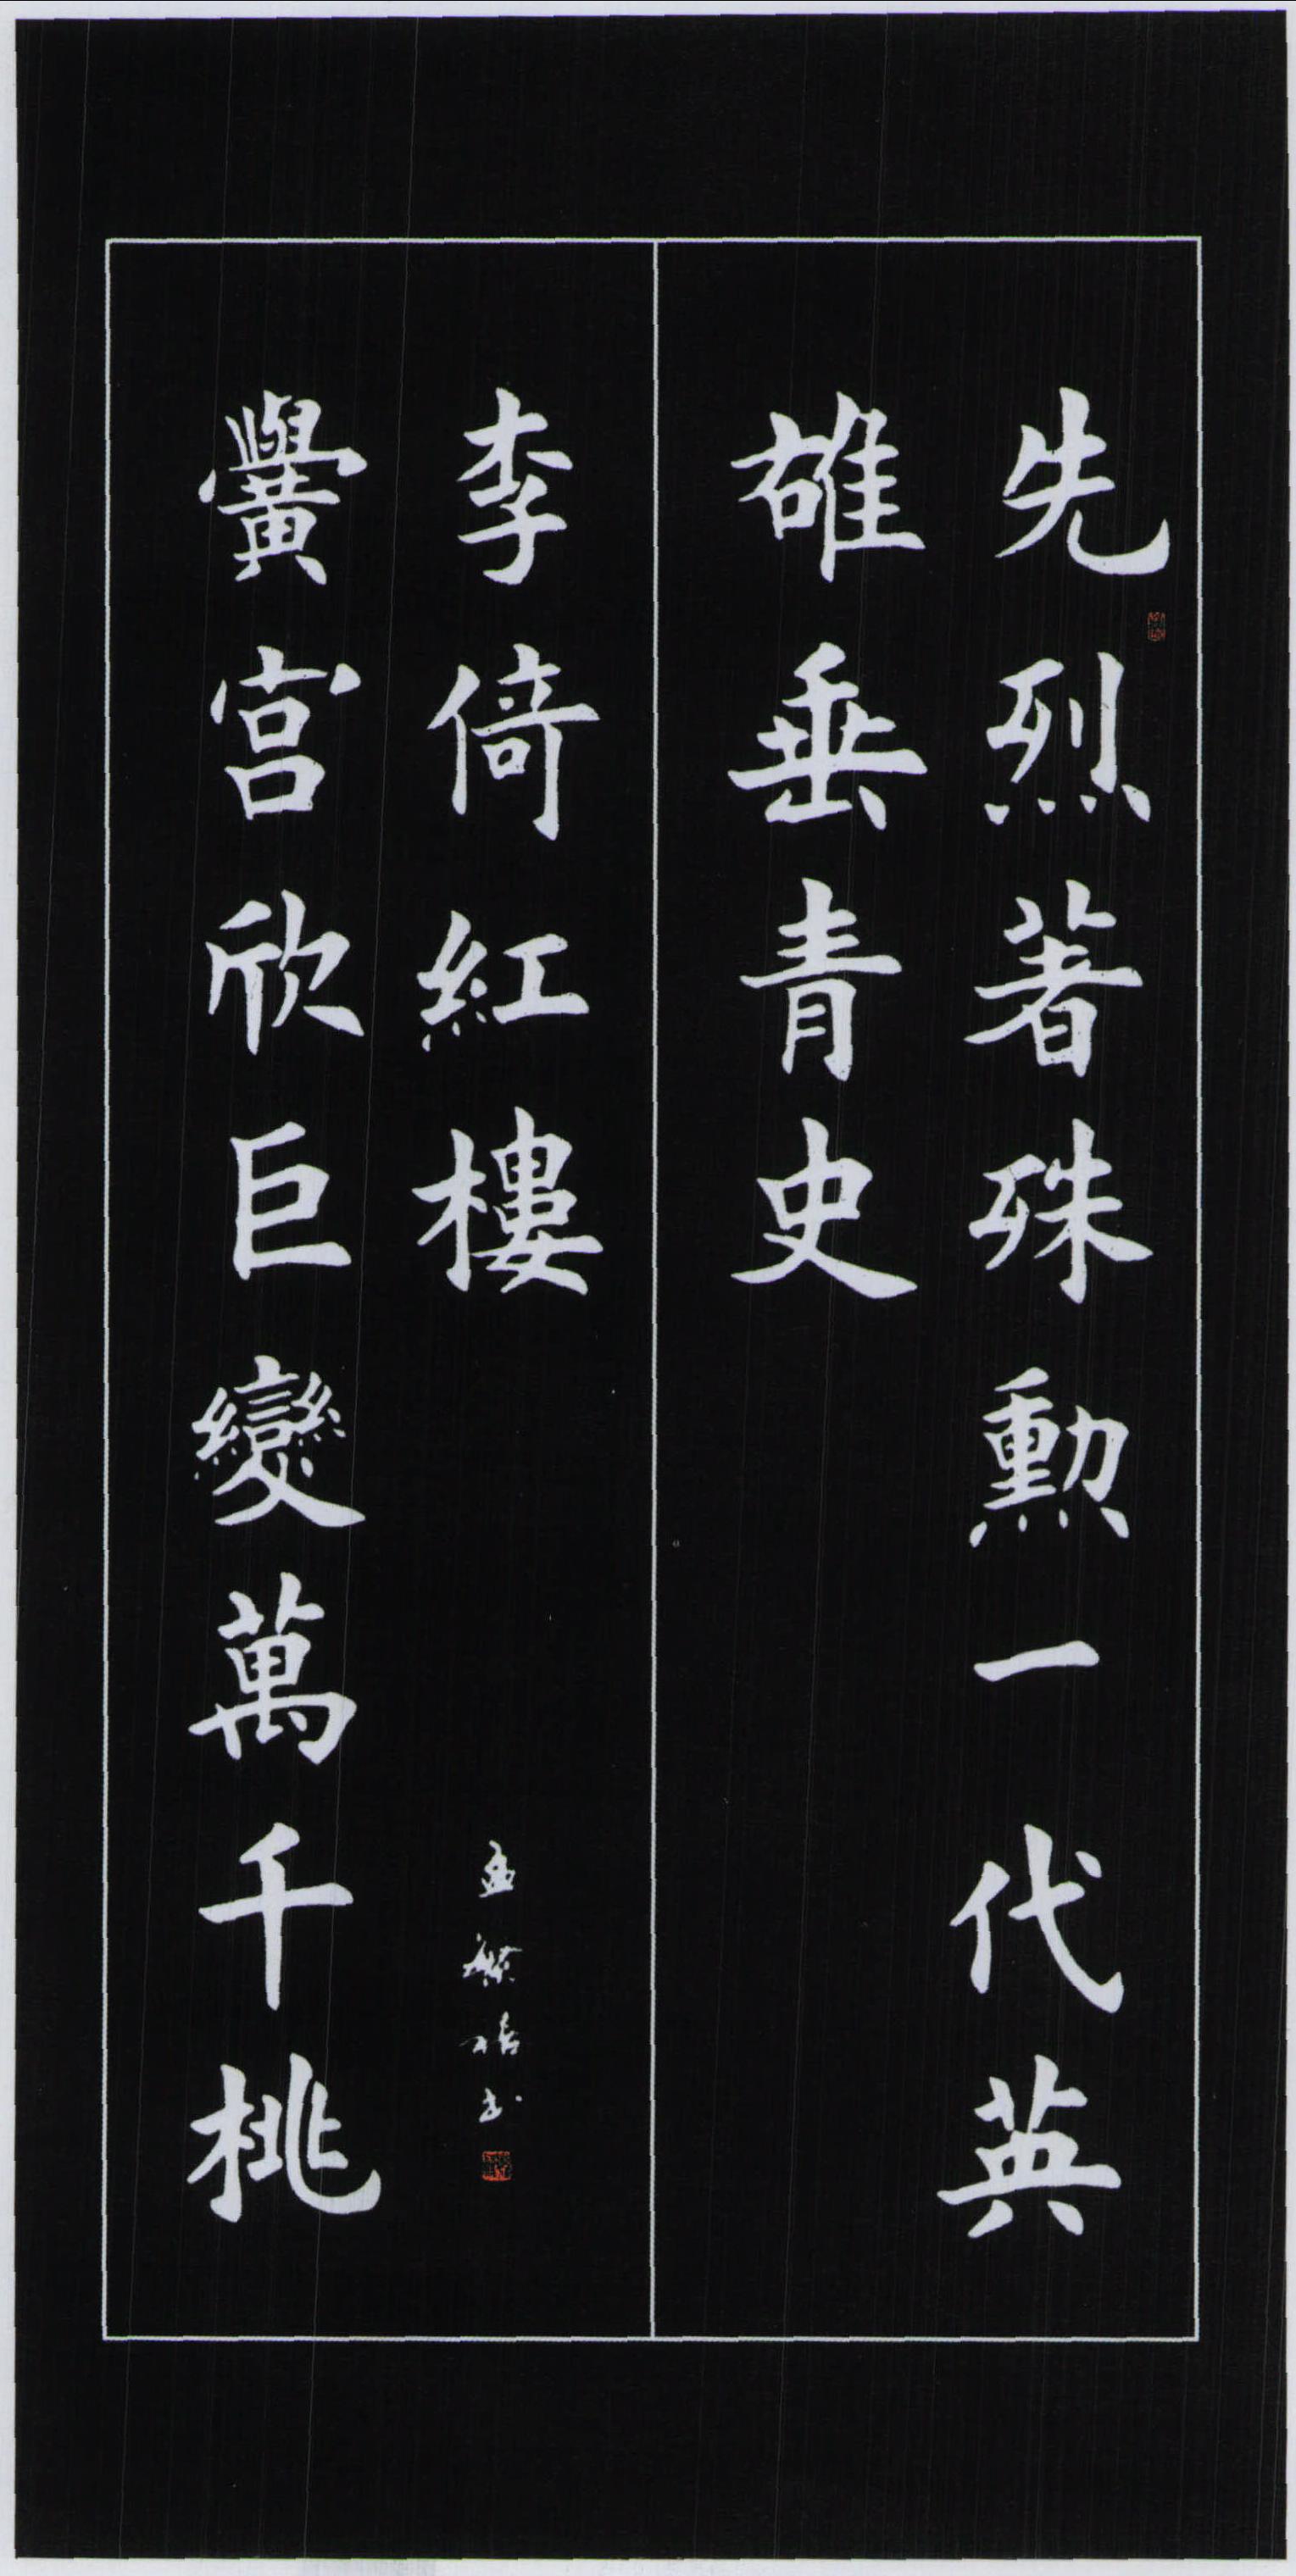 先烈著殊勳一代英
雄垂青史
黌宮欣巨變萬千桃
李倚紅樓